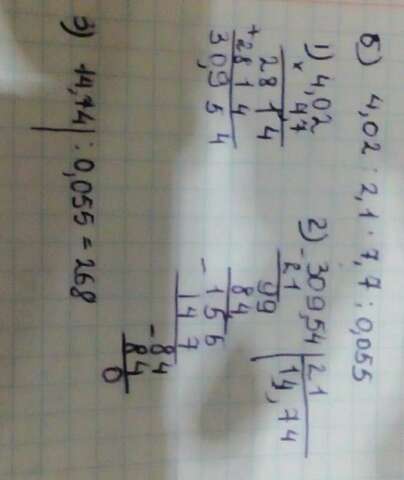 б) 4,02 : 2,1 · 7,7 : 0,055
1) 4,02
× 7,7
2814
+ 2814
30,954
2) - 309,54 | 21
21 | 14,74
99
84
- 155
147
- 84
84
0
3) 14,74 : 0,055 = 268